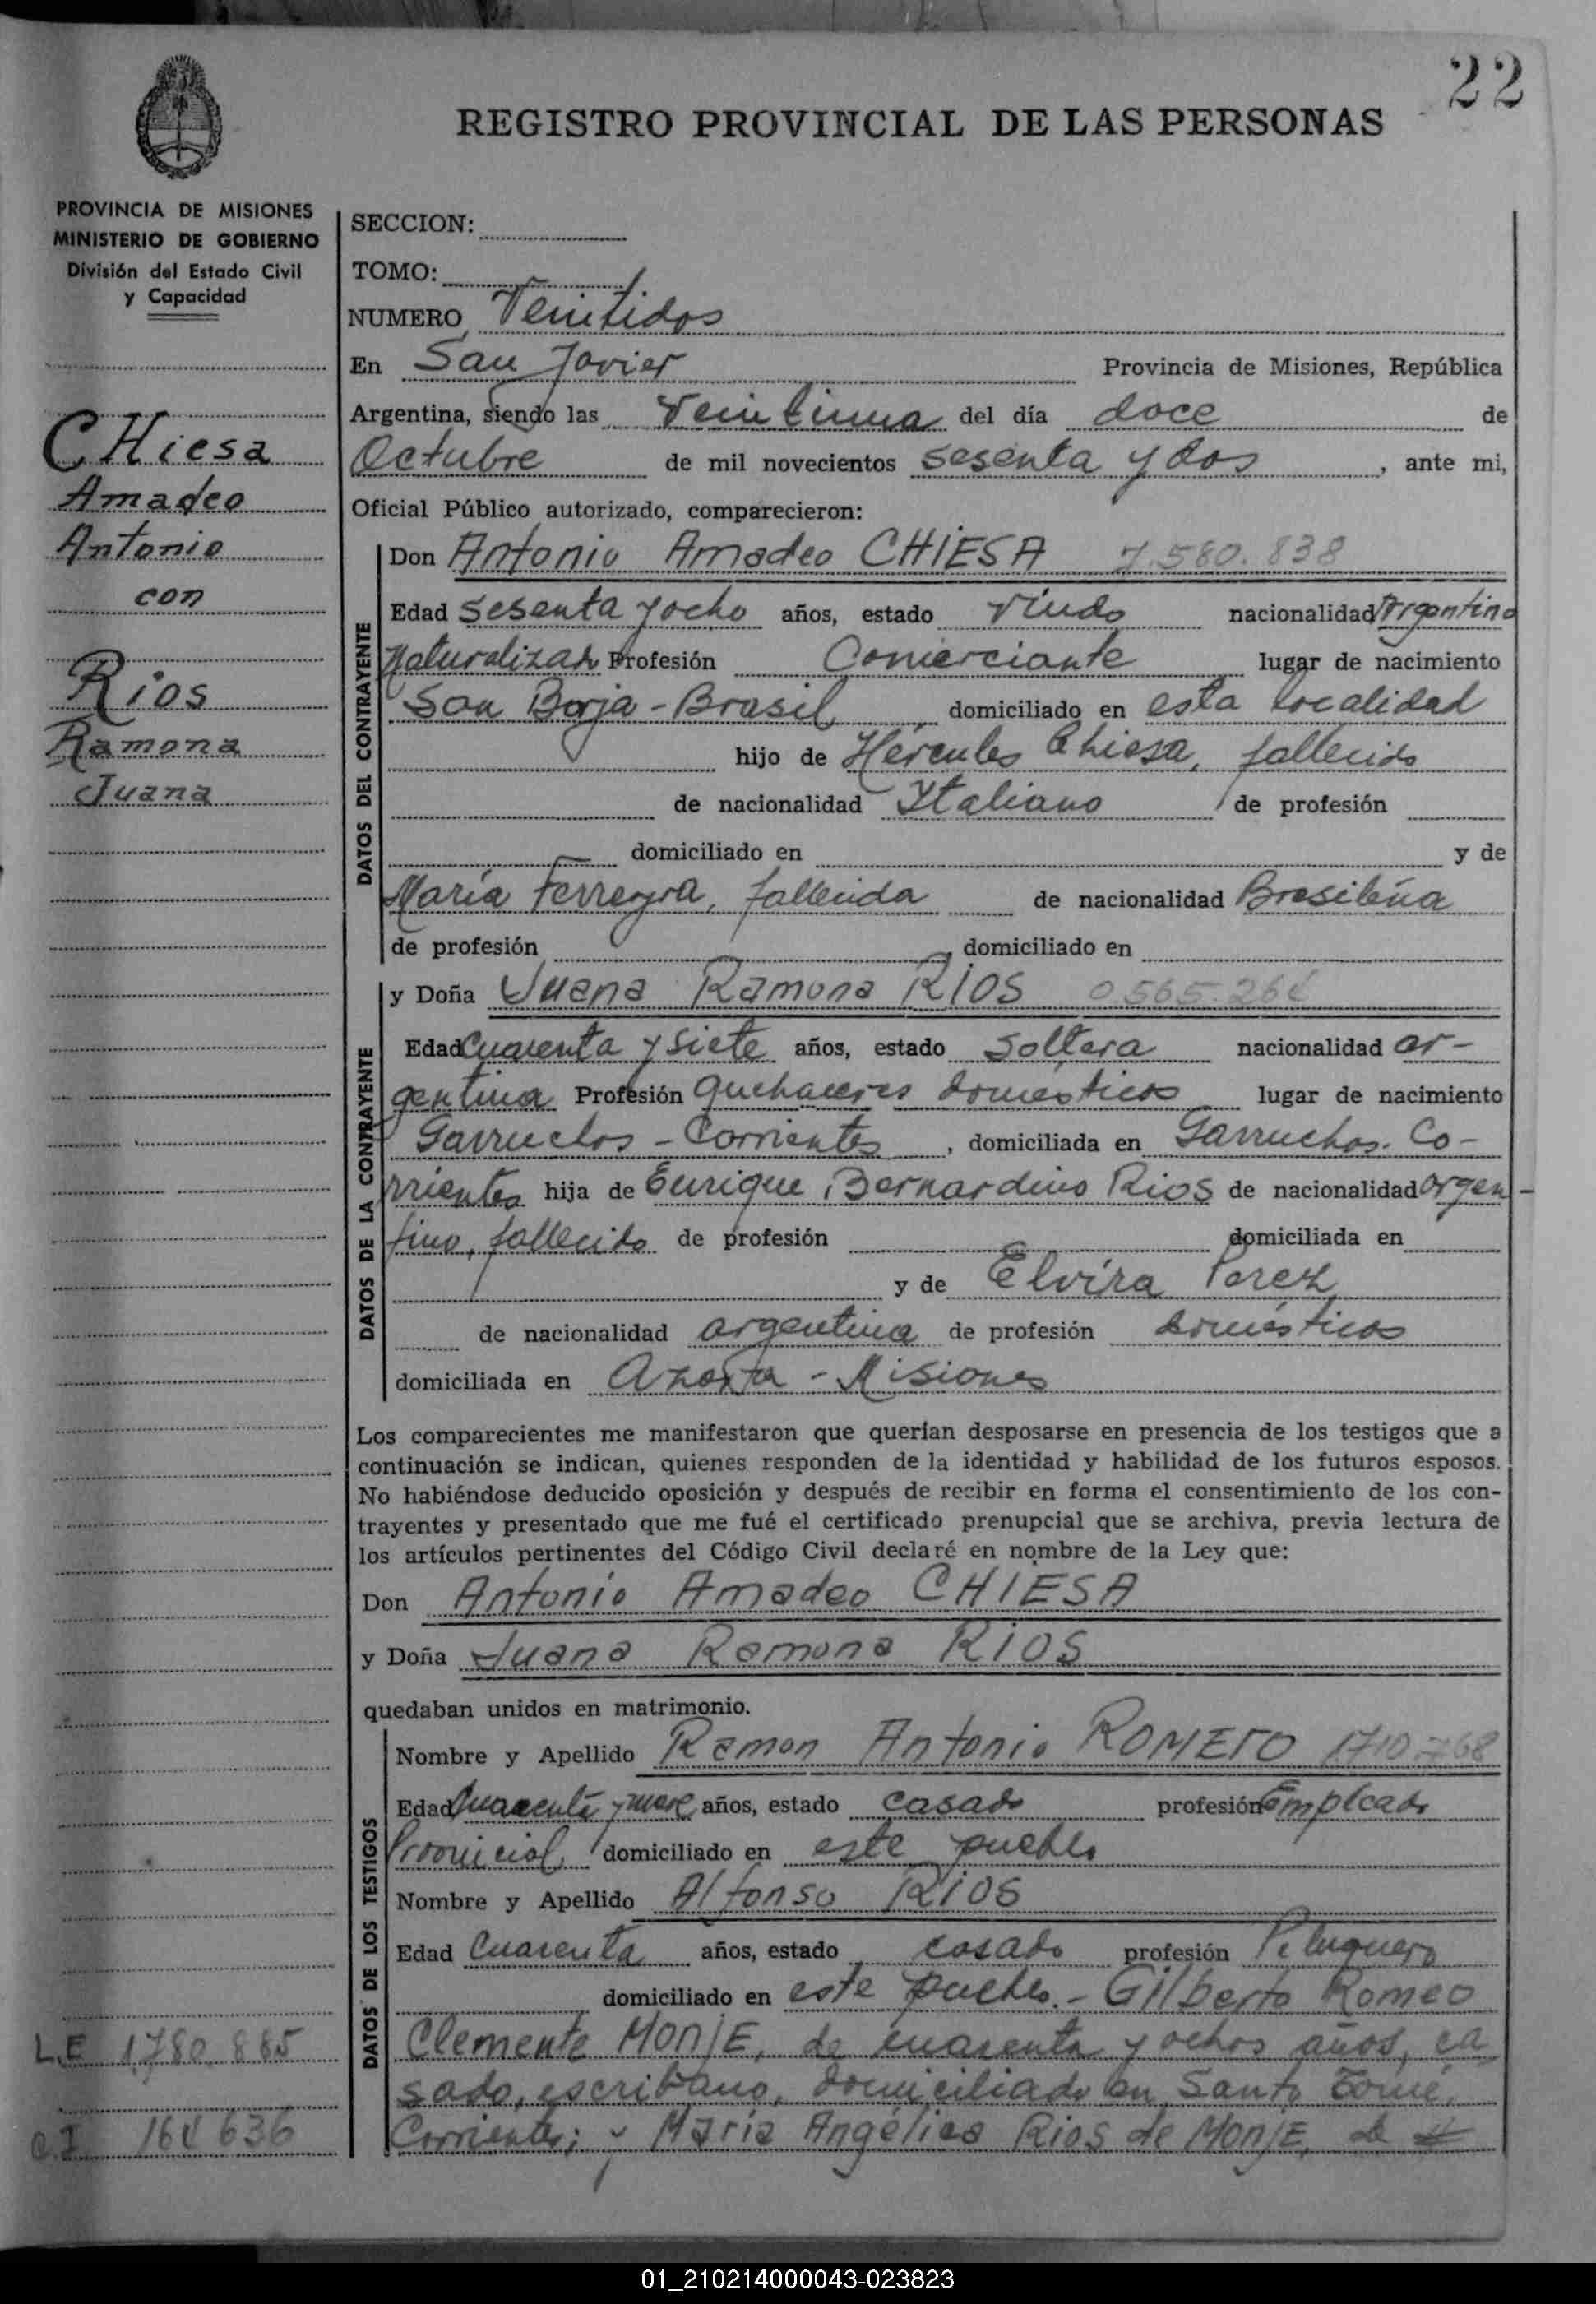 22
REGISTRO PROVINCIAL DE LAS PERSONAS
PROVINCIA DE MISIONES
MINISTERIO DE GOBIERNO
División del Estado Civil
y Capacidad
CHiesa
Amadeo
Antonio
con
Rios
Ramona
Juana
SECCION:
TOMO:
NUMERO Veintidos
En San Javier Provincia de Misiones, República
Argentina, siendo las Veintiuna del día doce de
Octubre de mil novecientos sesenta y dos, ante mi,
Oficial Público autorizado, comparecieron:
DATOS DEL CONTRAYENTE
Don Antonio Amadeo CHIESA 7.580.838
Edad Sesenta y ocho años, estado Viudo nacionalidad Argentino
Naturalizado Profesión Comerciante lugar de nacimiento
San Borja - Brasil domiciliado en esta localidad
hijo de Hércules Chiesa, fallecido
de nacionalidad Italiano de profesión
domiciliado en y de
María Ferreyra, fallecida de nacionalidad Brasileña
de profesión , domiciliado en
DATOS DE LA CONTRAYENTE
y Doña Juana Ramona RÍOS 0.565.264
Edad Cuarenta y siete años, estado Soltera nacionalidad ar-
gentina Profesión quehaceres domésticos lugar de nacimiento
Garruchos - Corrientes, domiciliada en Garruchos. Co-
rrientes hija de Enrique Bernardino Rios de nacionalidad argen-
tino, fallecido de profesión domiciliada en
y de Elvira Perez
de nacionalidad argentina de profesión domésticos
domiciliada en Azara - Misiones
Los comparecientes me manifestaron que querían desposarse en presencia de los testigos que a
continuación se indican, quienes responden de la identidad y habilidad de los futuros esposos.
No habiéndose deducido oposición y después de recibir en forma el consentimiento de los con-
trayentes y presentado que me fué el certificado prenupcial que se archiva, previa lectura de
los artículos pertinentes del Código Civil declaré en nombre de la Ley que:
Don Antonio Amadeo CHIESA
y Doña Juana Ramona RIOS
quedaban unidos en matrimonio.
DATOS DE LOS TESTIGOS
Nombre y Apellido Ramon Antonio ROMERO
Edad Cuarenta y años, estado casado profesión Empleado
Provincial, domiciliado en este pueblo
Nombre y Apellido Alfonso RIOS
Edad Cuarenta años, estado casado profesión Peluquero
domiciliado en este pueblo. - Gilberto Romeo
Clemente MONJE, de cuarenta y ochos años, ca
sado, escribano, domiciliado en Santo Tomé,
Corrientes; y María Angélica Rios de MONJE, de
L.E 1.780.885
C.I. 164636
01_210214000043-023823